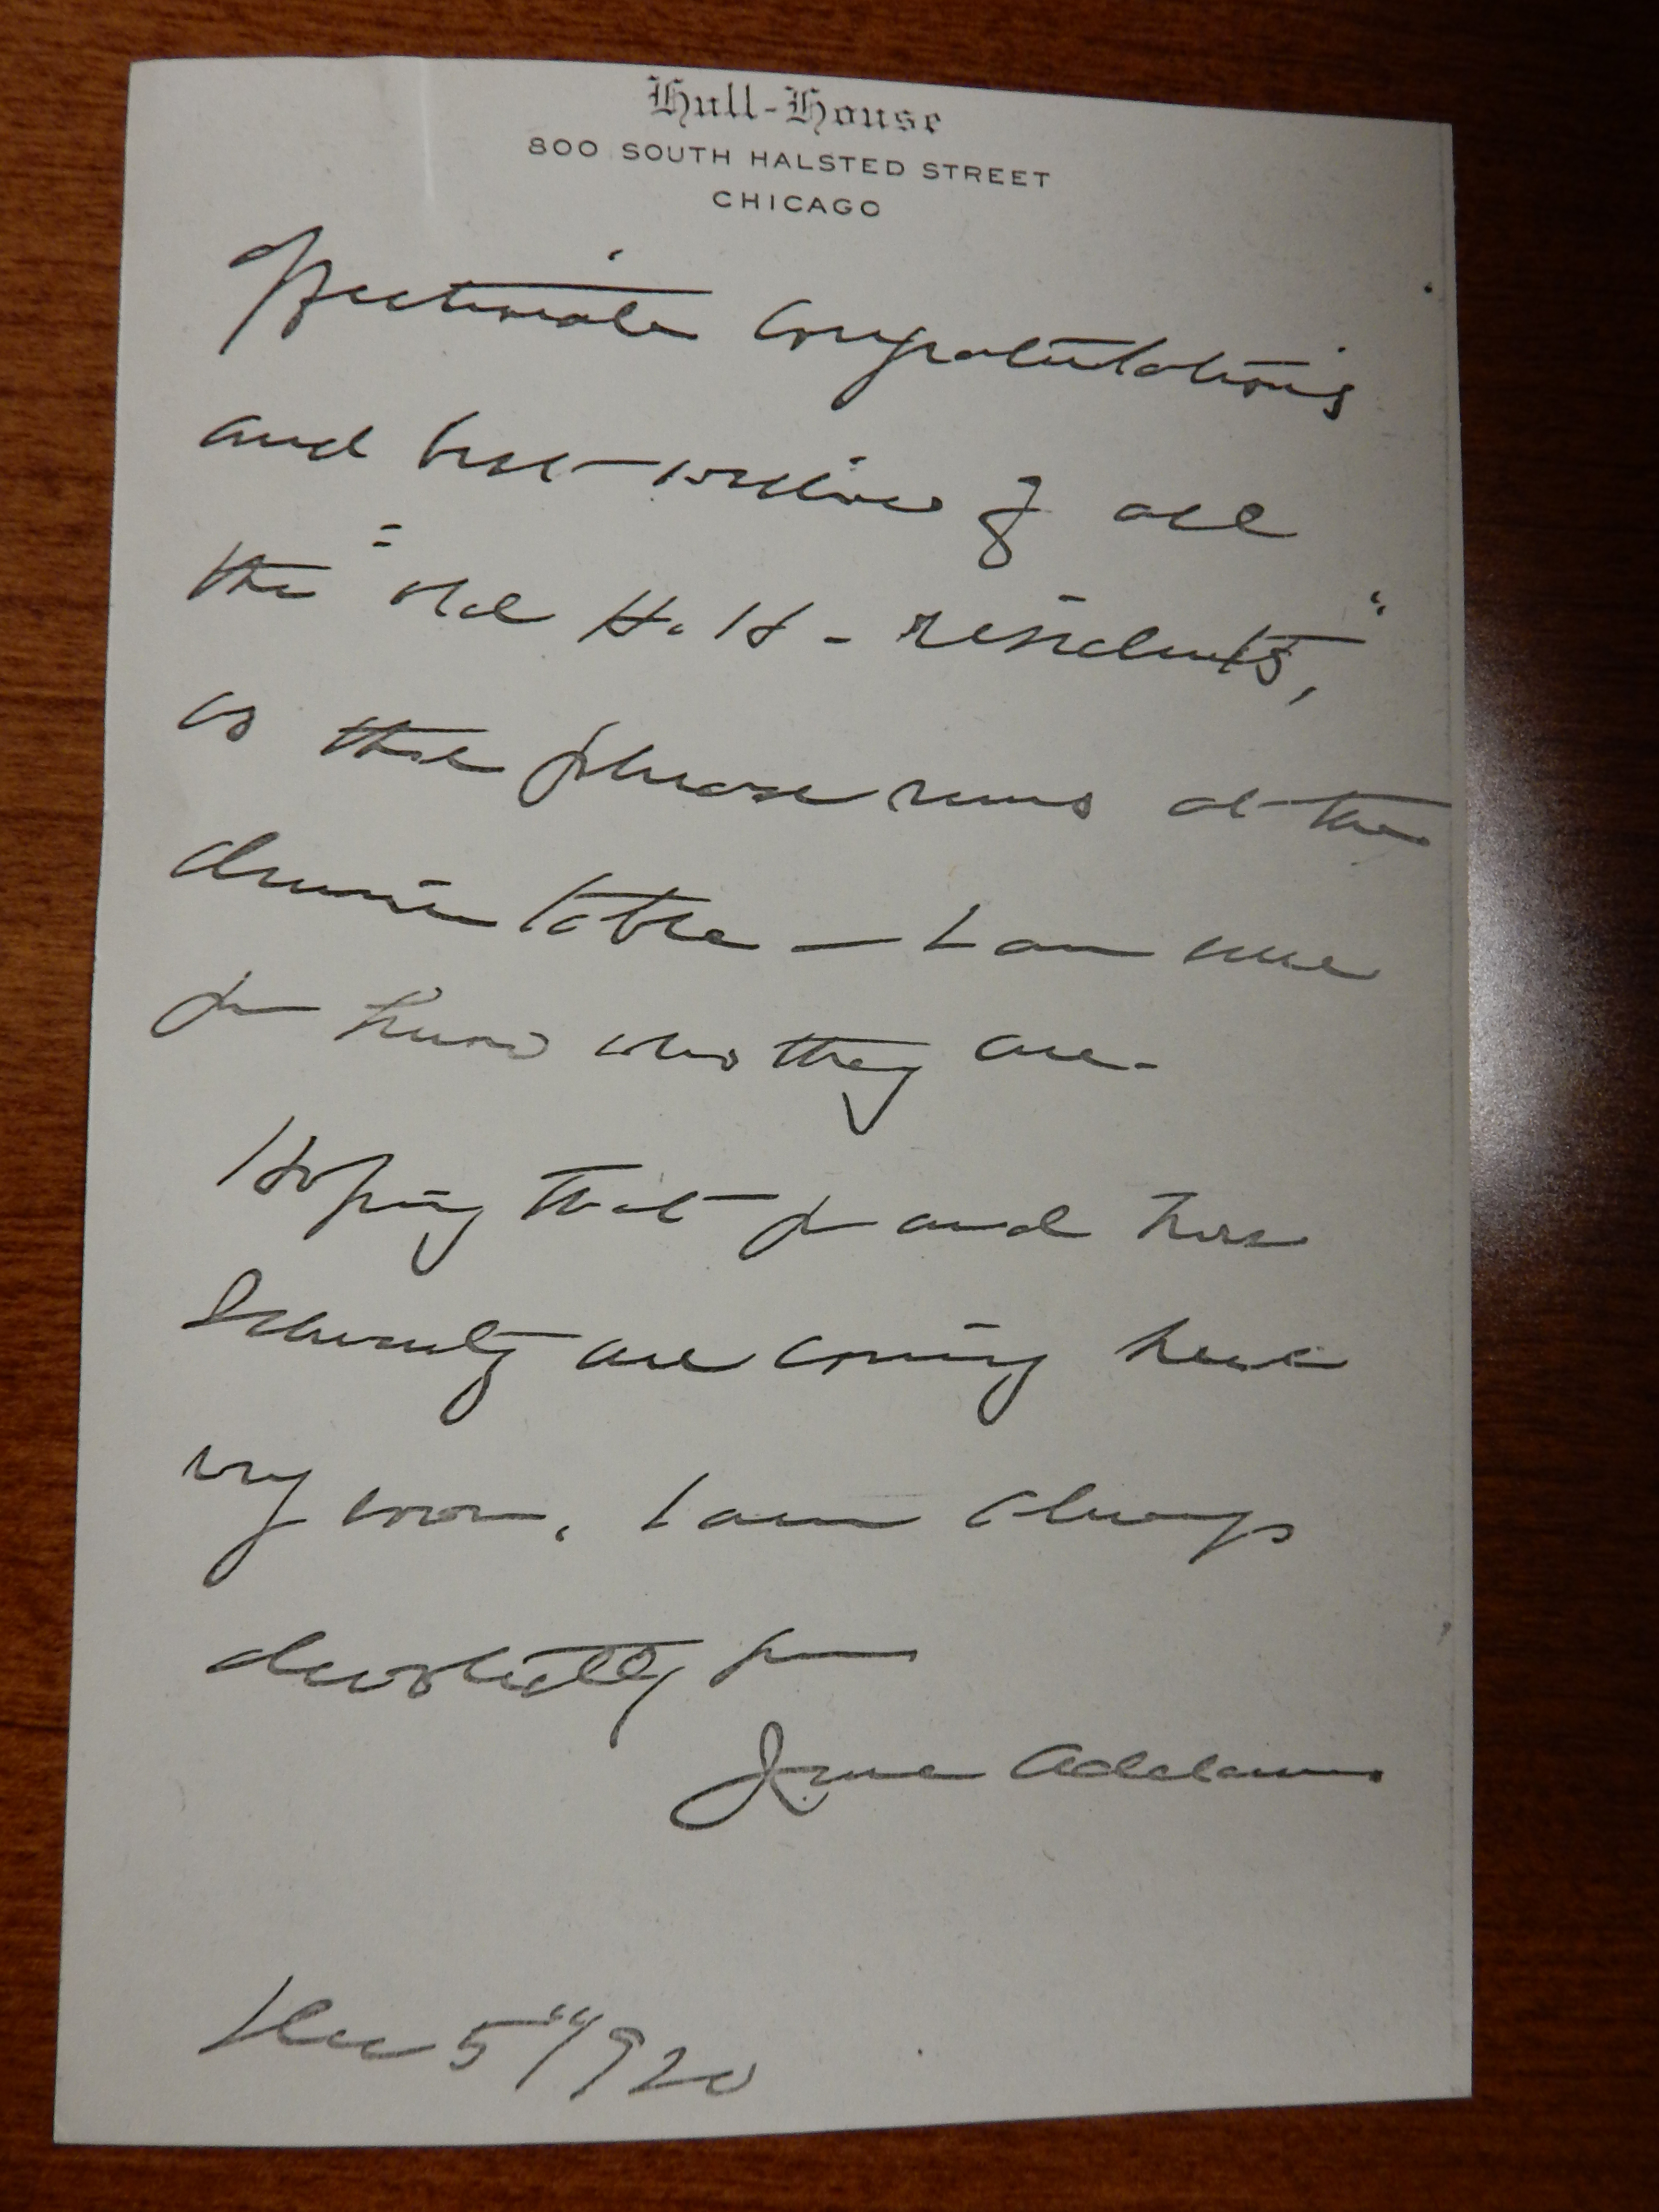 Hull-House
800 SOUTH HALSTED STREET
CHICAGO
Affectionate congratulations
and best wishes of all
the "old H. H - residents,"
as the phrase runs at the
dining table — I am sure
you know who they are -
Hoping that you and
are coming here
very soon, I am always
devotedly yours
Jane Addams
Dec 5" 1920